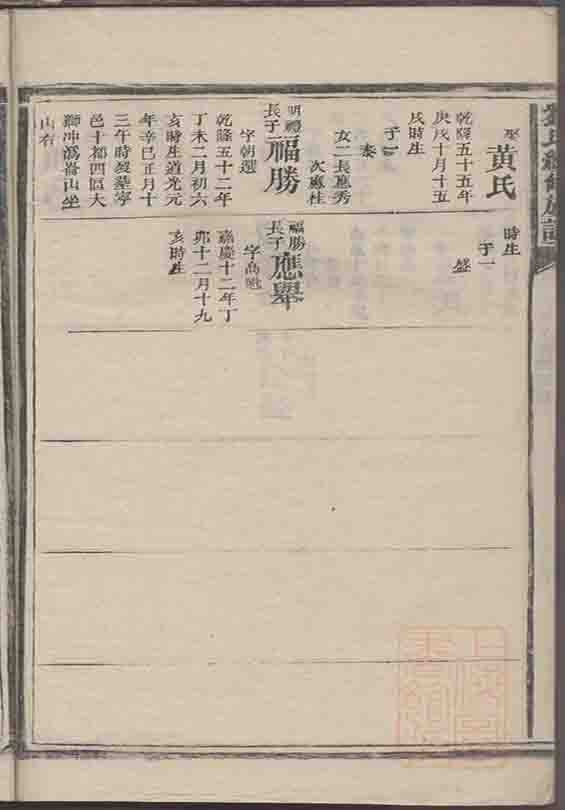 黄氏
乾隆五十五年
庚戌十月十五
戌時生
子一
泰
女二長應秀
次應桂
明禮
長子
福勝
字朝選
乾隆五十二年
丁未二月初六
亥時生道光元
年辛巳正月十
三午時歿墓寧
邑十都四區大
獅冲溈崙山坐
山右
時生
子一
盛
福勝
長子
應舉
字高
嘉慶十二年丁
卯十二月十九
亥時生
上海圖
書館藏